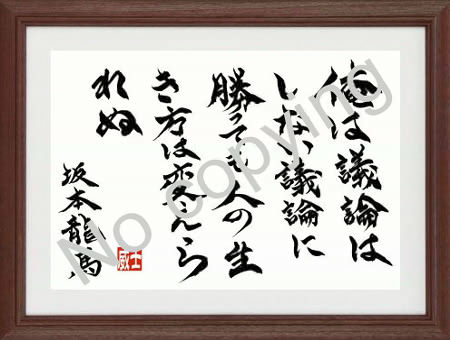 俺は議論は
しない議論に
勝っても人の生
き方は変えら
れぬ
坂本龍馬
No copying